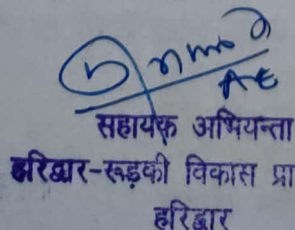 AE
सहायक अभियन्ता
हरिद्वार-रूड़की विकास प्रा
हरिद्वार